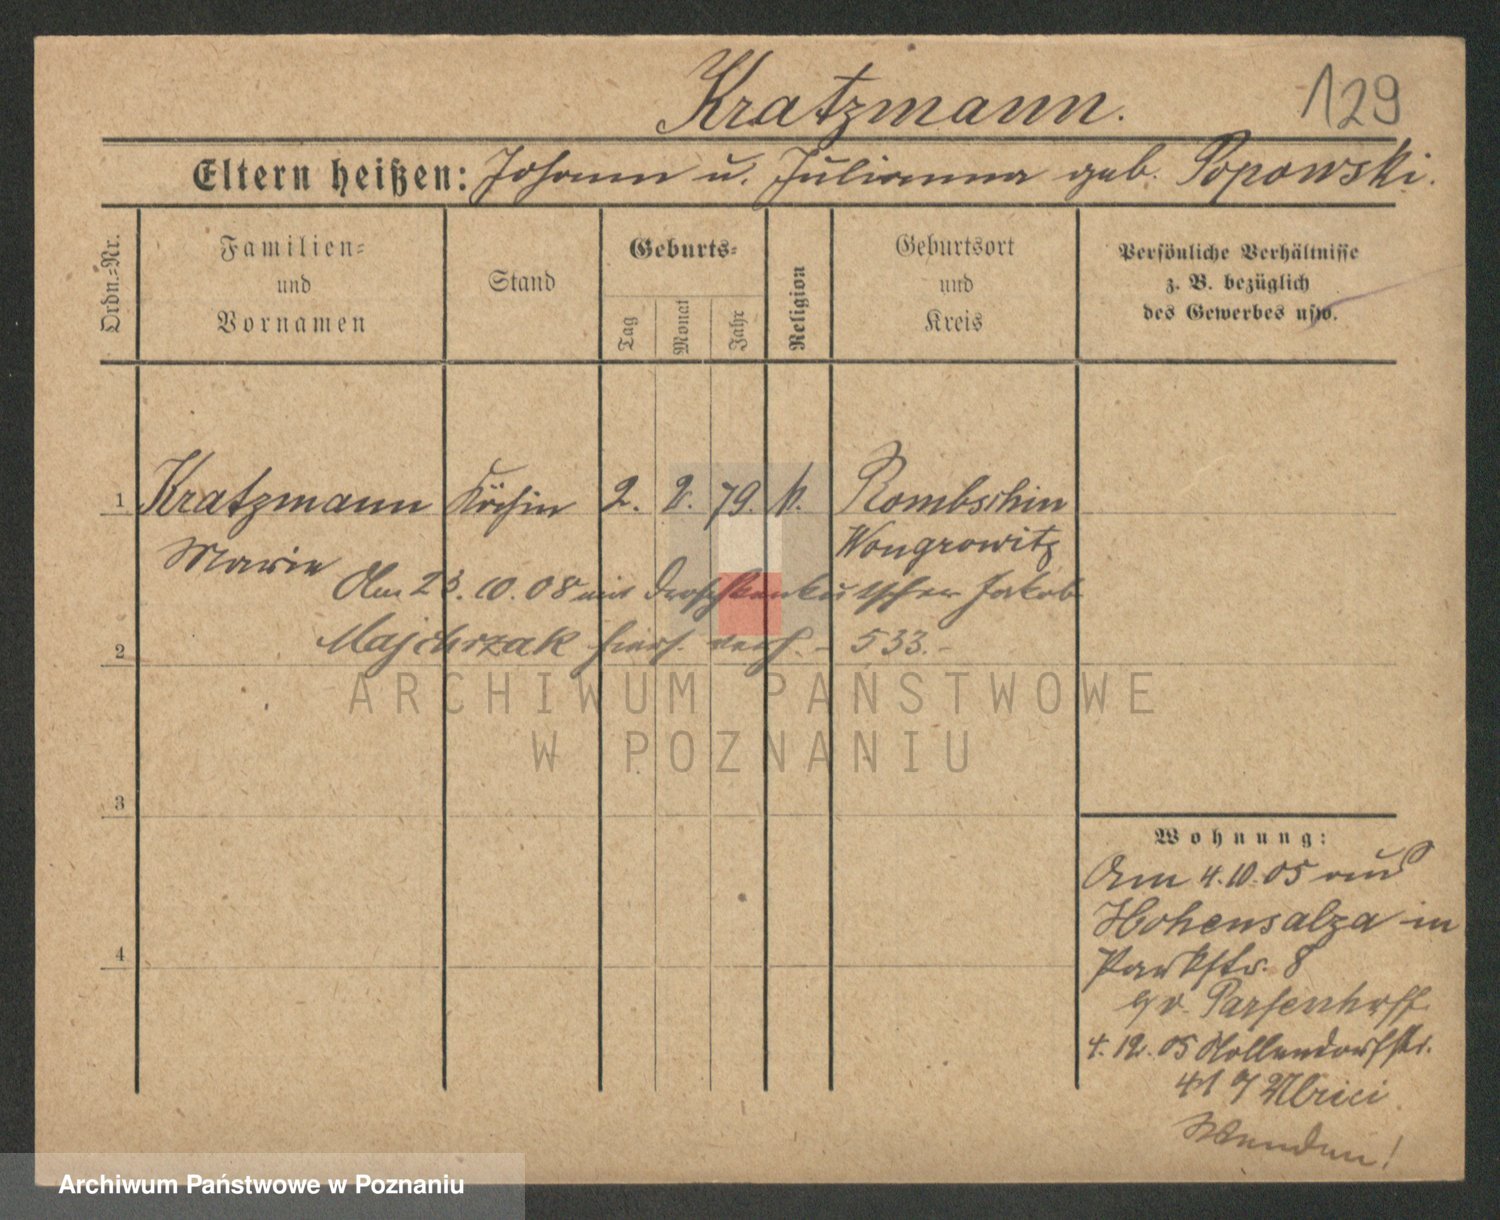 Kratzmann.
129
Eltern heißen: Johann u. Julianna geb. Popowski.
Ordn.-Nr.
Familien-
und
Vornamen
Stand
Geburts-
Tag
Monat
Jahr
Religion
Geburtsort
und
Kreis
Persönliche Verhältnisse
z. B. bezüglich
des Gewerbes usw.
1 Kratzmann Köchin 2. 2. 79. k. Rombschin
Marie Wongrowitz
Am 23.10.08 mit Droschkenkutscher Jakob
Majchrzak hiers. verh. - 533.-
2
3
4
Wohnung:
Am 4.10.05 aus
Hohensalza in
Parkstr. 8
4.12.05 Nollendorfstr.
41
Wenden!
ARCHIWUM PAŃSTWOWE
W POZNANIU
Archiwum Państwowe w Poznaniu